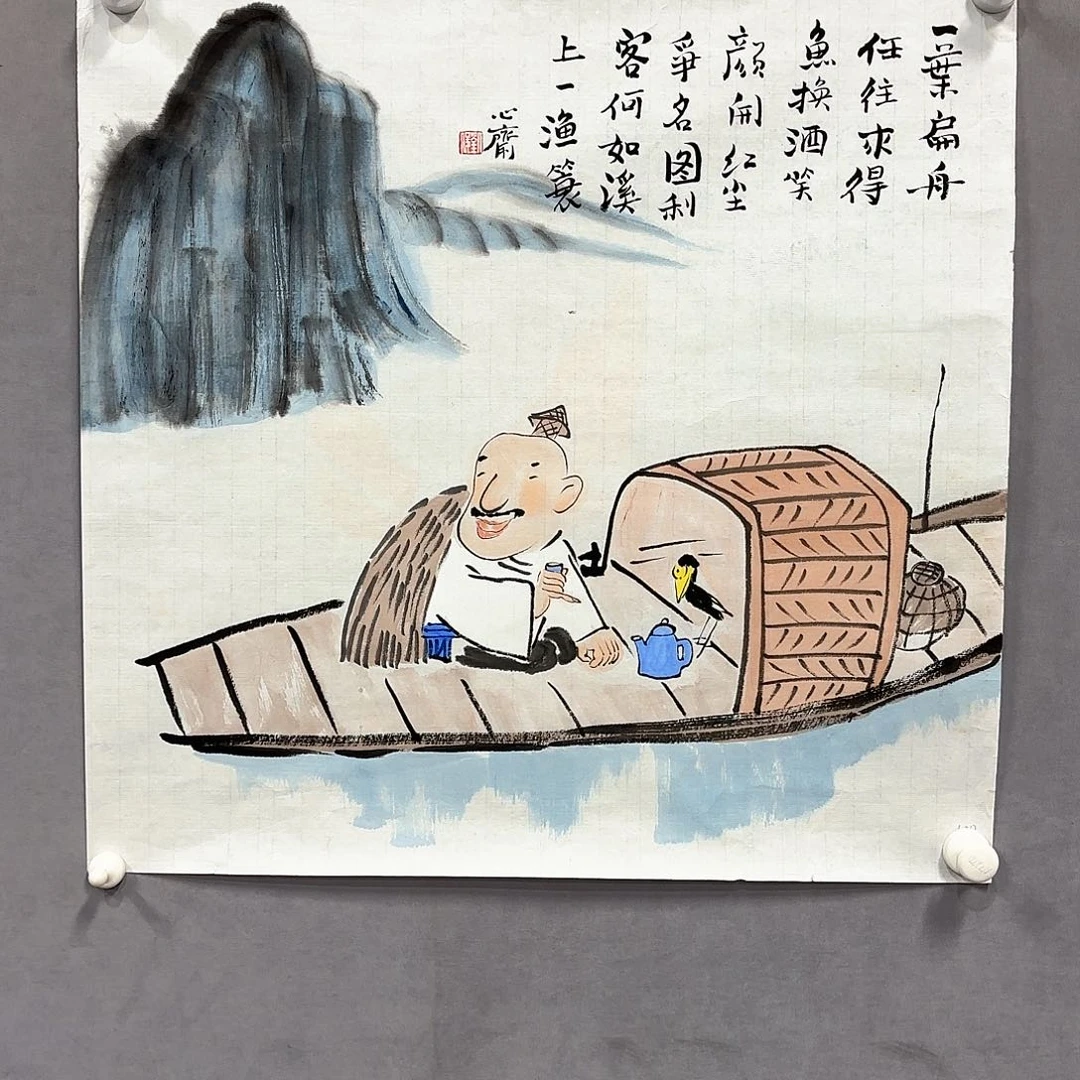 一葉扁舟
任往來得
魚換酒笑
顔開紅尘
爭名图利
客何如溪
上一漁蓑
心齋